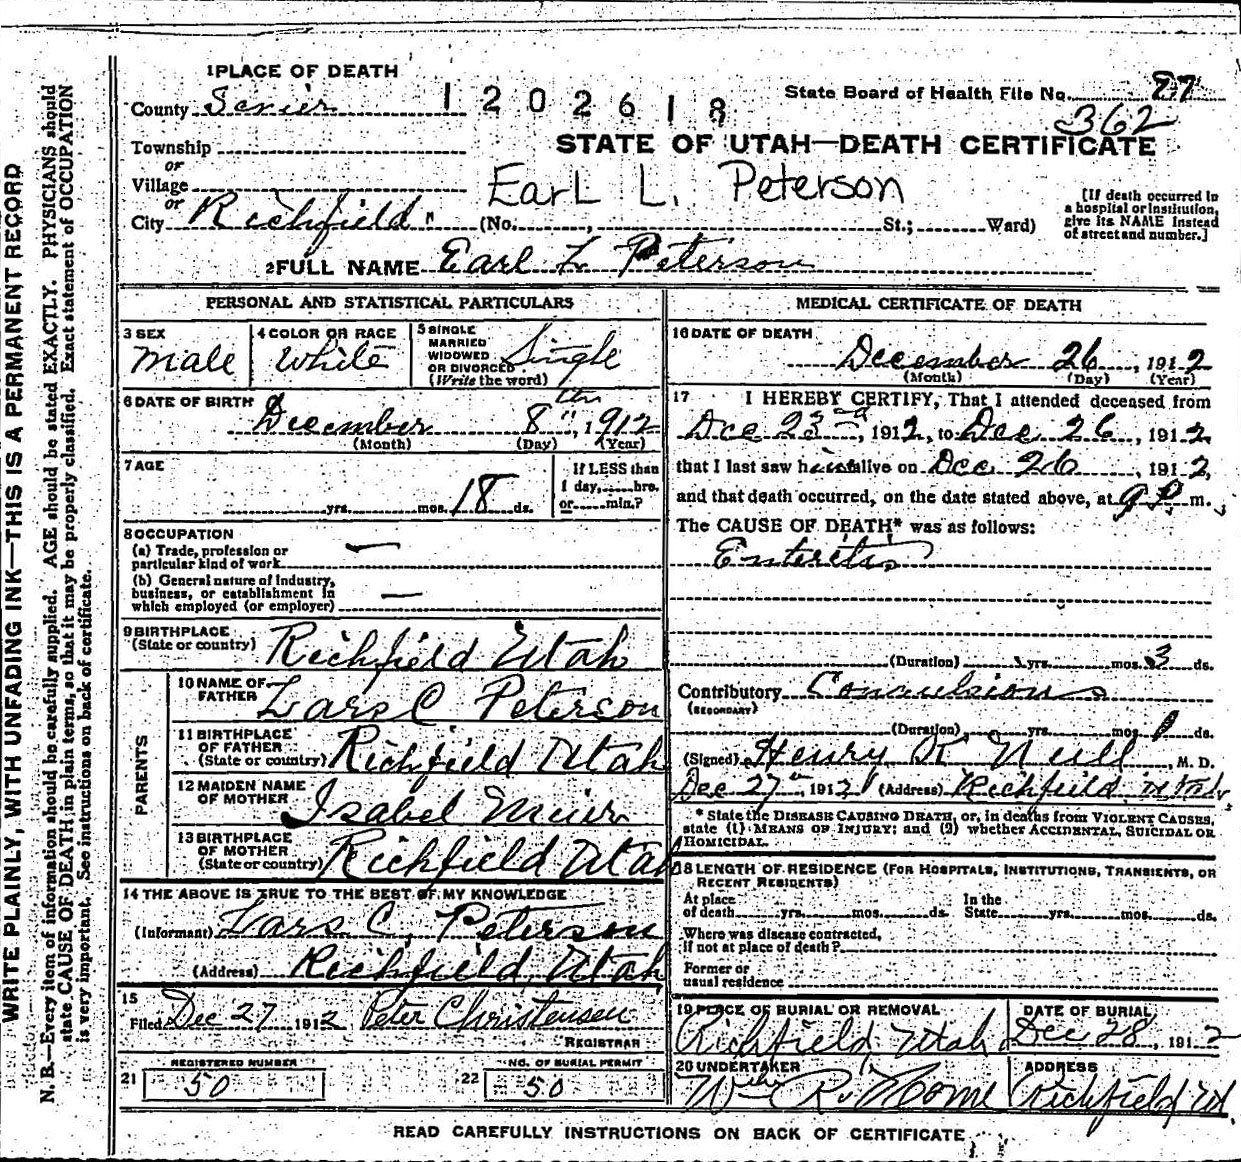 WRITE PLAINLY, WITH UNFADING INK—THIS IS A PERMANENT RECORD
N. B.—Every item of information should be carefully supplied. AGE should be stated EXACTLY. PHYSICIANS should
state CAUSE OF DEATH in plain terms, so that it may be properly classified. Exact statement of OCCUPATION
is very important. See instructions on back of certificate.
1 PLACE OF DEATH
County Sevier
1202618
State Board of Health File No. 27
362
Township
STATE OF UTAH—DEATH CERTIFICATE
or
Village
Earl L. Peterson
or
City Richfield
(No. , St.; Ward)
[If death occurred in
a hospital or institution,
give its NAME instead
of street and number.]
2 FULL NAME Earl L Peterson
PERSONAL AND STATISTICAL PARTICULARS
3 SEX
Male
4 COLOR OR RACE
White
5 SINGLE
MARRIED
WIDOWED
OR DIVORCED
(Write the word)
Single
6 DATE OF BIRTH
December 8th, 1912
(Month) (Day) (Year)
7 AGE
yrs. mos. 18 ds.
If LESS than
1 day, hrs.
or min.?
8 OCCUPATION
(a) Trade, profession or
particular kind of work —
(b) General nature of industry,
business, or establishment in
which employed (or employer) —
9 BIRTHPLACE
(State or country) Richfield Utah
PARENTS
10 NAME OF
FATHER Lars C Peterson
11 BIRTHPLACE
OF FATHER
(State or country) Richfield Utah
12 MAIDEN NAME
OF MOTHER Isabel
13 BIRTHPLACE
OF MOTHER
(State or country) Richfield Utah
14 THE ABOVE IS TRUE TO THE BEST OF MY KNOWLEDGE
(Informant) Lars C. Peterson
(Address) Richfield, Utah
15
Filed Dec 27 1912 Peter Christensen
REGISTRAR
REGISTERED NUMBER
21 50
NO. OF BURIAL PERMIT
22 50
MEDICAL CERTIFICATE OF DEATH
16 DATE OF DEATH
December 26, 1912
(Month) (Day) (Year)
17 I HEREBY CERTIFY, That I attended deceased from
Dec 23rd, 1912, to Dec 26, 1912,
that I last saw him alive on Dec 26, 1912,
and that death occurred, on the date stated above, at 9 P. m.
The CAUSE OF DEATH* was as follows:
Enteritis
(Duration) yrs. mos. 3 ds.
Contributory Convulsions
(SECONDARY)
(Duration) yrs. mos. ds.
(Signed) Henry K Neill, M. D.
Dec 27, 1912 (Address) Richfield, Utah
* State the DISEASE CAUSING DEATH, or, in deaths from VIOLENT CAUSES,
state (1) MEANS OF INJURY; and (2) whether ACCIDENTAL, SUICIDAL OR
HOMICIDAL.
18 LENGTH OF RESIDENCE (FOR HOSPITALS, INSTITUTIONS, TRANSIENTS, OR
RECENT RESIDENTS)
At place
of death yrs. mos. ds.
In the
State yrs. mos. ds.
Where was disease contracted,
if not at place of death?
Former or
usual residence
19 PLACE OF BURIAL OR REMOVAL
Richfield Utah
DATE OF BURIAL
Dec 28, 1912
20 UNDERTAKER
ADDRESS
Richfield Ut
READ CAREFULLY INSTRUCTIONS ON BACK OF CERTIFICATE